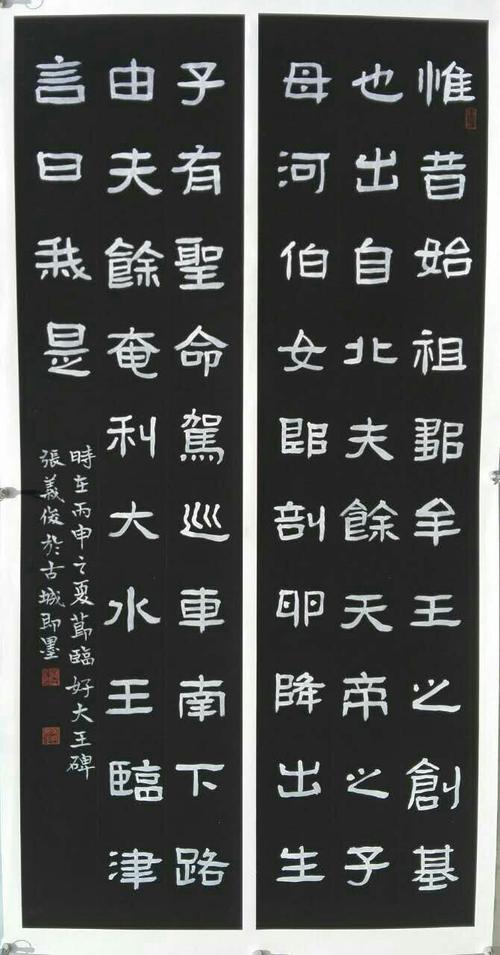 惟昔始祖鄒牟王之創基
也出自北夫餘天帝之子
母河伯女郎剖卵降出生
子有聖命駕巡車南下路
由夫餘奄利大水王臨津
言曰我是
時在丙申之夏節臨好大王碑
張義俊於古城即墨